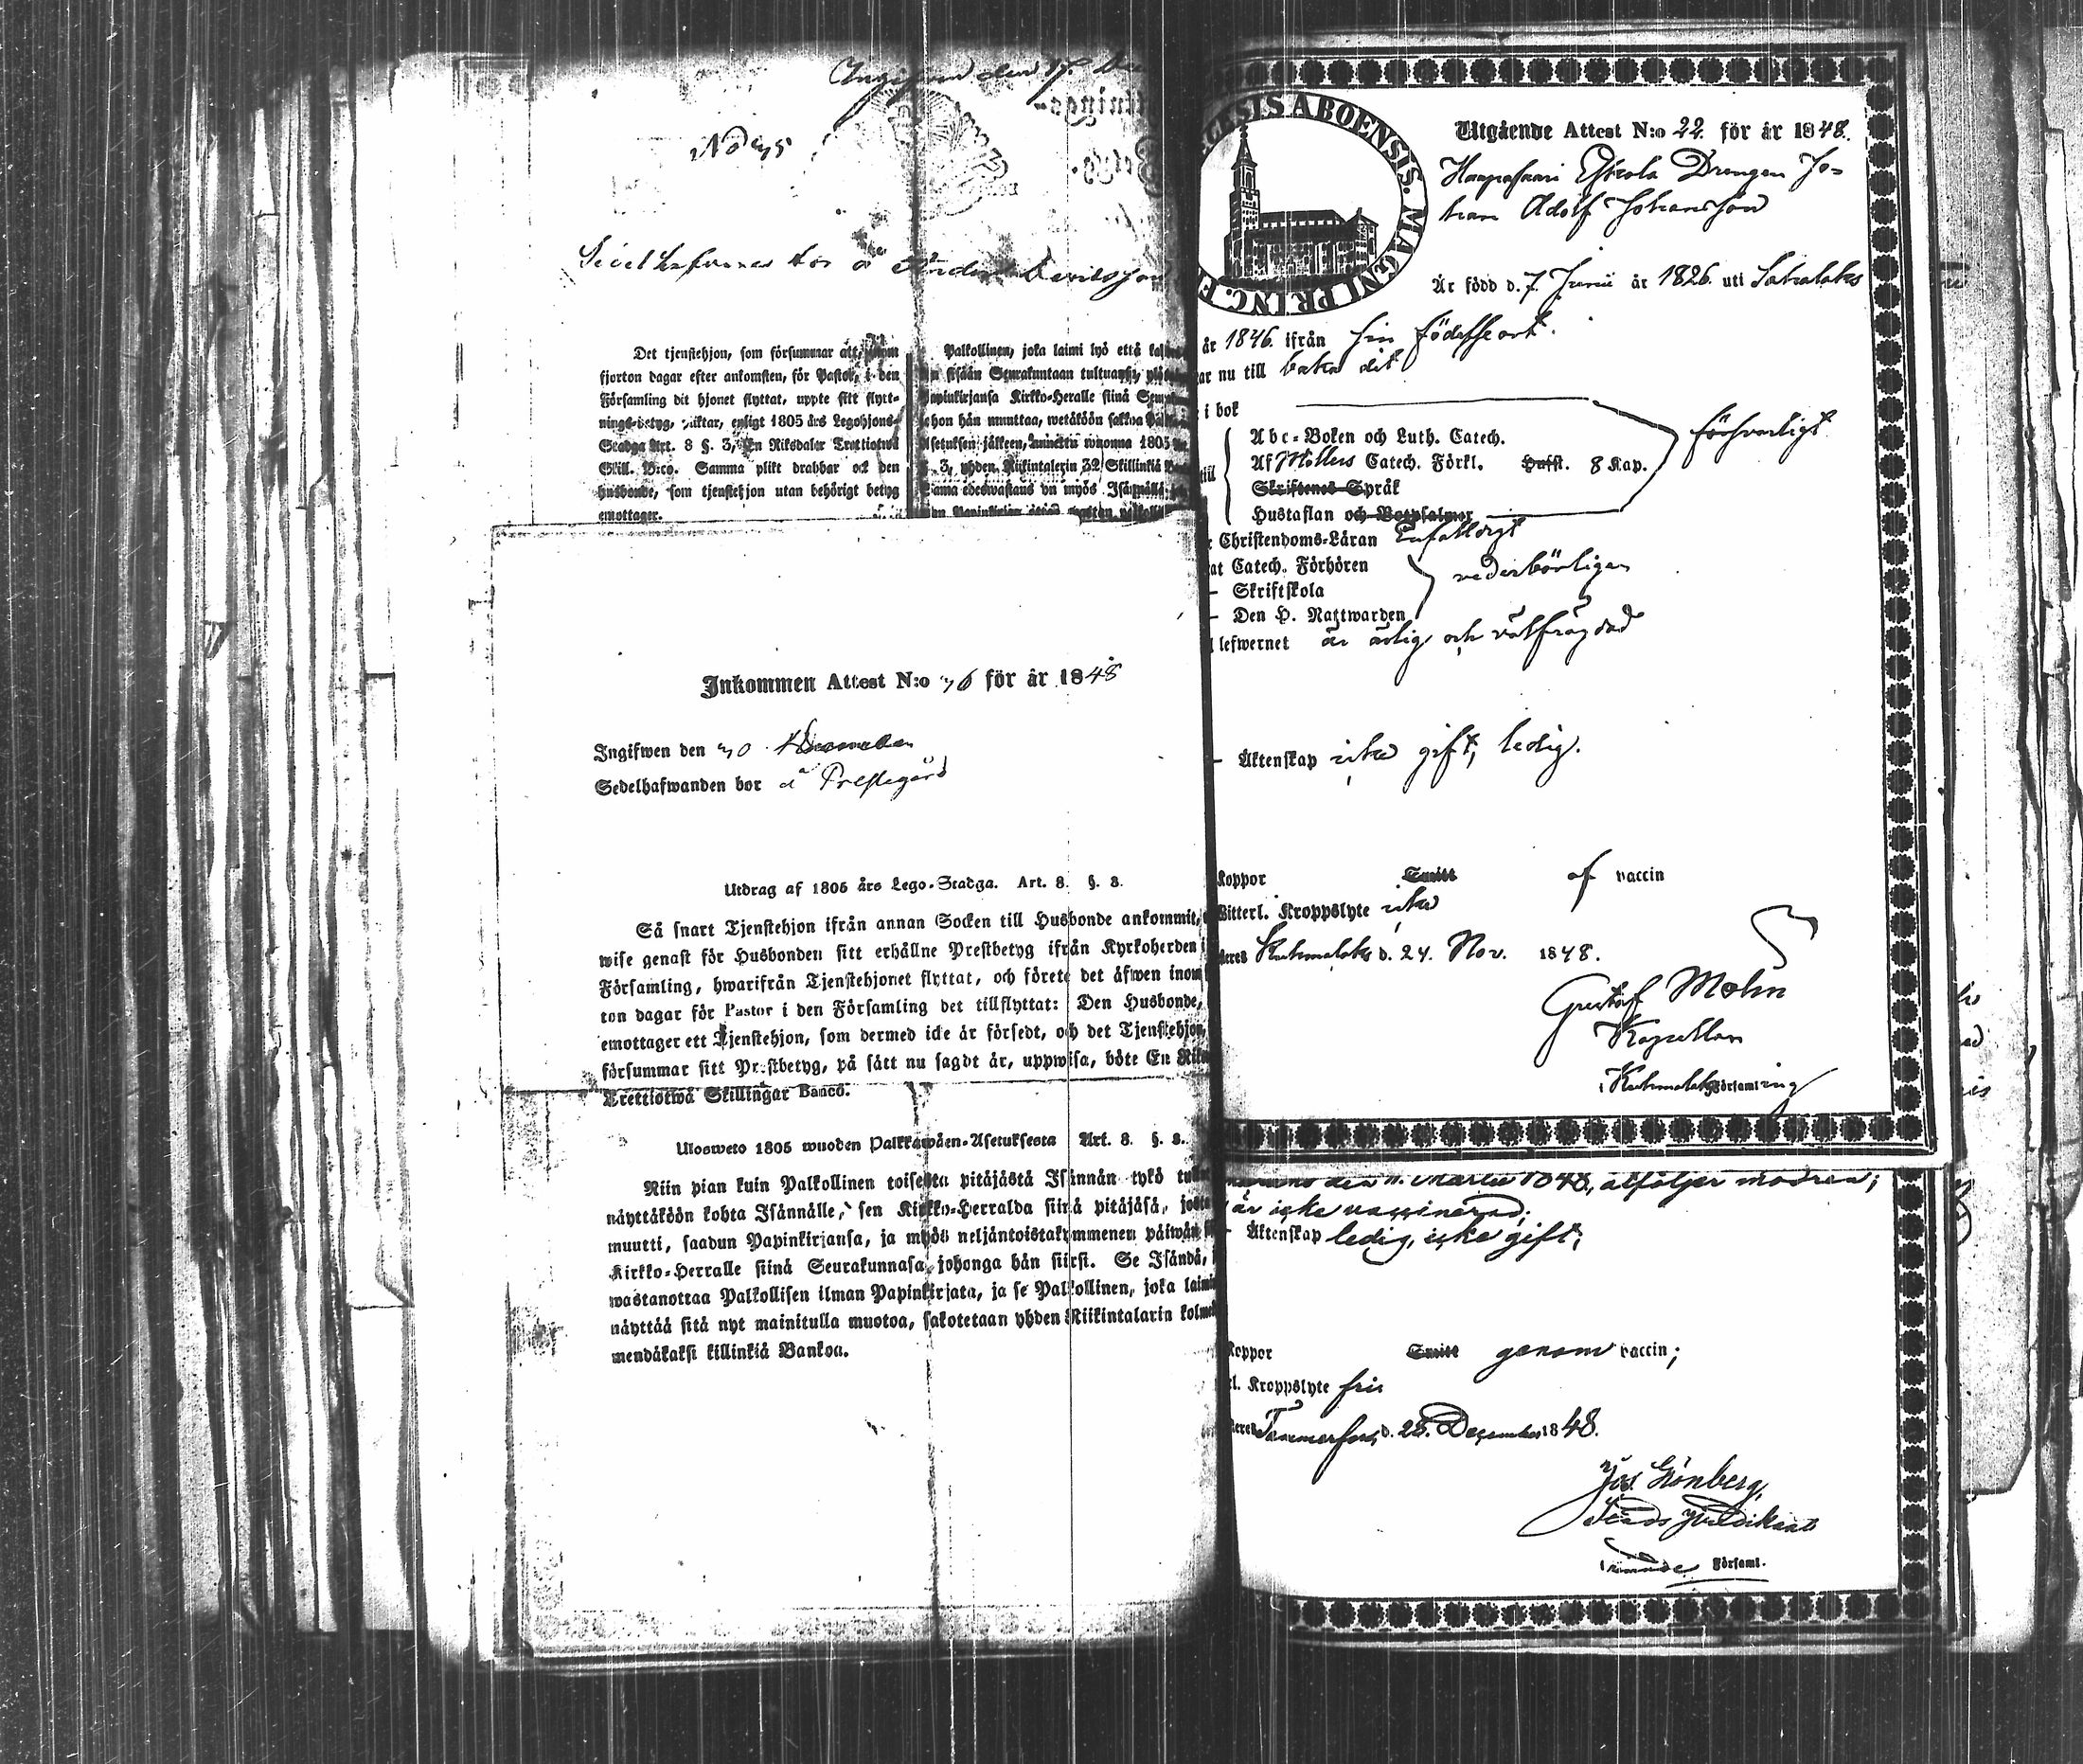 Ingifwen den 17.
No 75
Sedelhafwanden bor å
Det tjenstehjon, som försummar att, inom
fjorton dagar efter ankomsten, för Pastor, i den
Församling dit hjonet flyttat, uppte sitt flytt-
nings-betyg, pliktar, enligt 1805 års Legohjons-
Stadga Art. 8 §. 3, En Riksdaler Trettiotwå
Skill. B:co. Samma plikt drabbar ock den
husbonde, som tjenstehjon utan behörigt betyg
emottager.
Palkollinen, joka laimi lyö että
sisään Seurakuntaan tultuansa,
Papinkirjansa Kirkko-Heralle siinä
johon hän muuttaa, wetäköön sakkoa
Asetuksen jälkeen, annettu wuonna 1805
§. 3, yhden Riikintalerin 32 Skillinkiä
Sama edeswastaus on myös
Inkommen Attest N:o 76 för år 1848
Ingifwen den 30
Sedelhafwanden bor å Prestegård
Utdrag af 1805 års Lego-Stadga. Art. 8. §. 3.
Så snart Tjenstehjon ifrån annan Socken till Husbonde ankommit,
wise genast för Husbonden sitt erhållne Prestbetyg ifrån Kyrkoherden i
Församling, hwarifrån Tjenstehjonet flyttat, och förete det äfwen inom
ton dagar för Pastor i den Församling det tillflyttat: Den Husbonde,
emottager ett Tjenstehjon, som dermed icke är försedt, och det Tjenstehjon,
försummar sitt Prestbetyg, på sätt nu sagdt är, uppwisa, böte En
Trettiotwå Skillingar Banco.
Ulosweto 1805 wuoden Palkkawäen-Asetuksesta Art. 8. §. 3.
Niin pian kuin Palkollinen toisesta pitäjästä Isännän tykö
näyttäköön kohta Isännälle, sen Kirkko-Herralda siinä pitäjäsä, josta
muutti, saadun Papinkirjansa, ja myös neljäntoistakymmenen päiwän
Kirkko-Herralle siinä Seurakunnasa, johonga hän siirsi. Se Isändä,
wastanottaa Palkollisen ilman Papinkirjata, ja se Palkollinen, joka
näyttää sitä nyt mainitulla muotoa, sakotetaan yhden Riikintalarin
mendäkaksi killinkiä Bankoa.
ABOENSIS. MAGNI PRINC. F
Utgående Attest N:o 22 för år 1848.
Haapasaari Eskola Drengen Jo-
han Adolf Johansson
Är född d. 7 Junii år 1826. uti Sahalaks
år 1846. ifrån sin födelseort.
nu till baka dit
i bok
Abc-Boken och Luth. Catech.
Af Möllers Catech. Förkl. Husft. 8 Kap.
försvarligt
till
Skriftenes Språk
Hustaflan och Botpsalmer
Christendoms-Läran Enfaldigt
Catech. Förhören
vederbörligen
Skriftskola
Den H. Nattwarden
lefwernet är ärlig och välfrägdad
Äktenskap icke gift, ledig.
Koppor Smitt af vaccin
Witterl. Kroppslyte icke
Kuhmalaks d. 24. Nov. 1848.
Gustaf Molin
Kapellan
i Kuhmalaks Församling
den 11. Martii 1848, åtföljer modren;
är icke vaccinerad;
Äktenskap ledig, icke gift;
Koppor Smitt genom vaccin;
Kroppslyte fri
Tammerfors d. 28. December 1848.
Jos. Grönberg,
Stads Predikant
Församl.